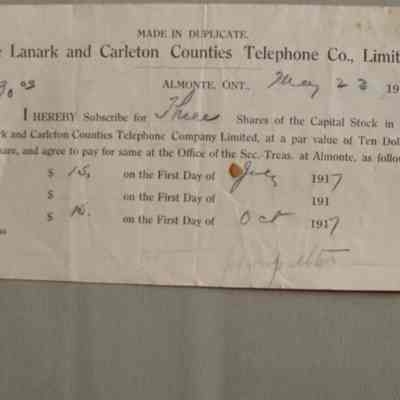 MADE IN DUPLICATE.
Lanark and Carleton Counties Telephone Co., Limit
ALMONTE, ONT., May 23 19
I HEREBY Subscribe for Three Shares of the Capital Stock in
rk and Carleton Counties Telephone Company Limited, at a par value of Ten Dol
hare, and agree to pay for same at the Office of the Sec.-Treas. at Almonte, as follow
$ 15, on the First Day of July 1917
$ on the First Day of 191
$ 15. on the First Day of Oct 1917